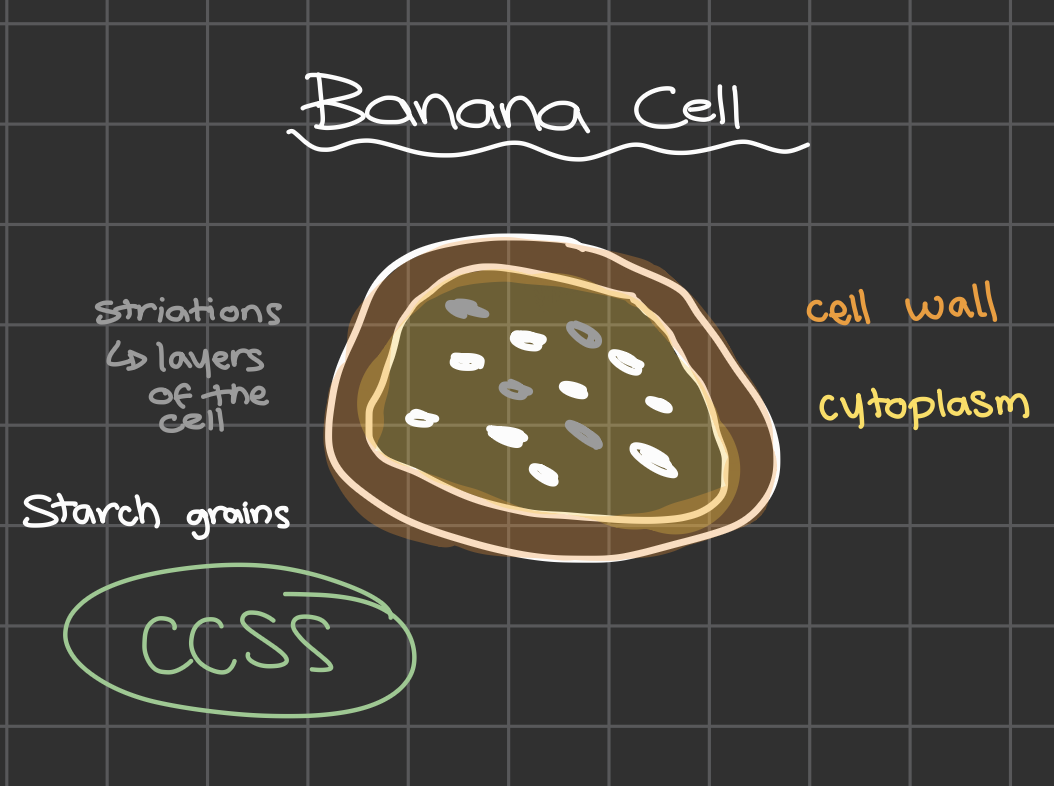 Banana Cell
striations
↳ layers
of the
cell
cell wall
cytoplasm
Starch grains
CCSS